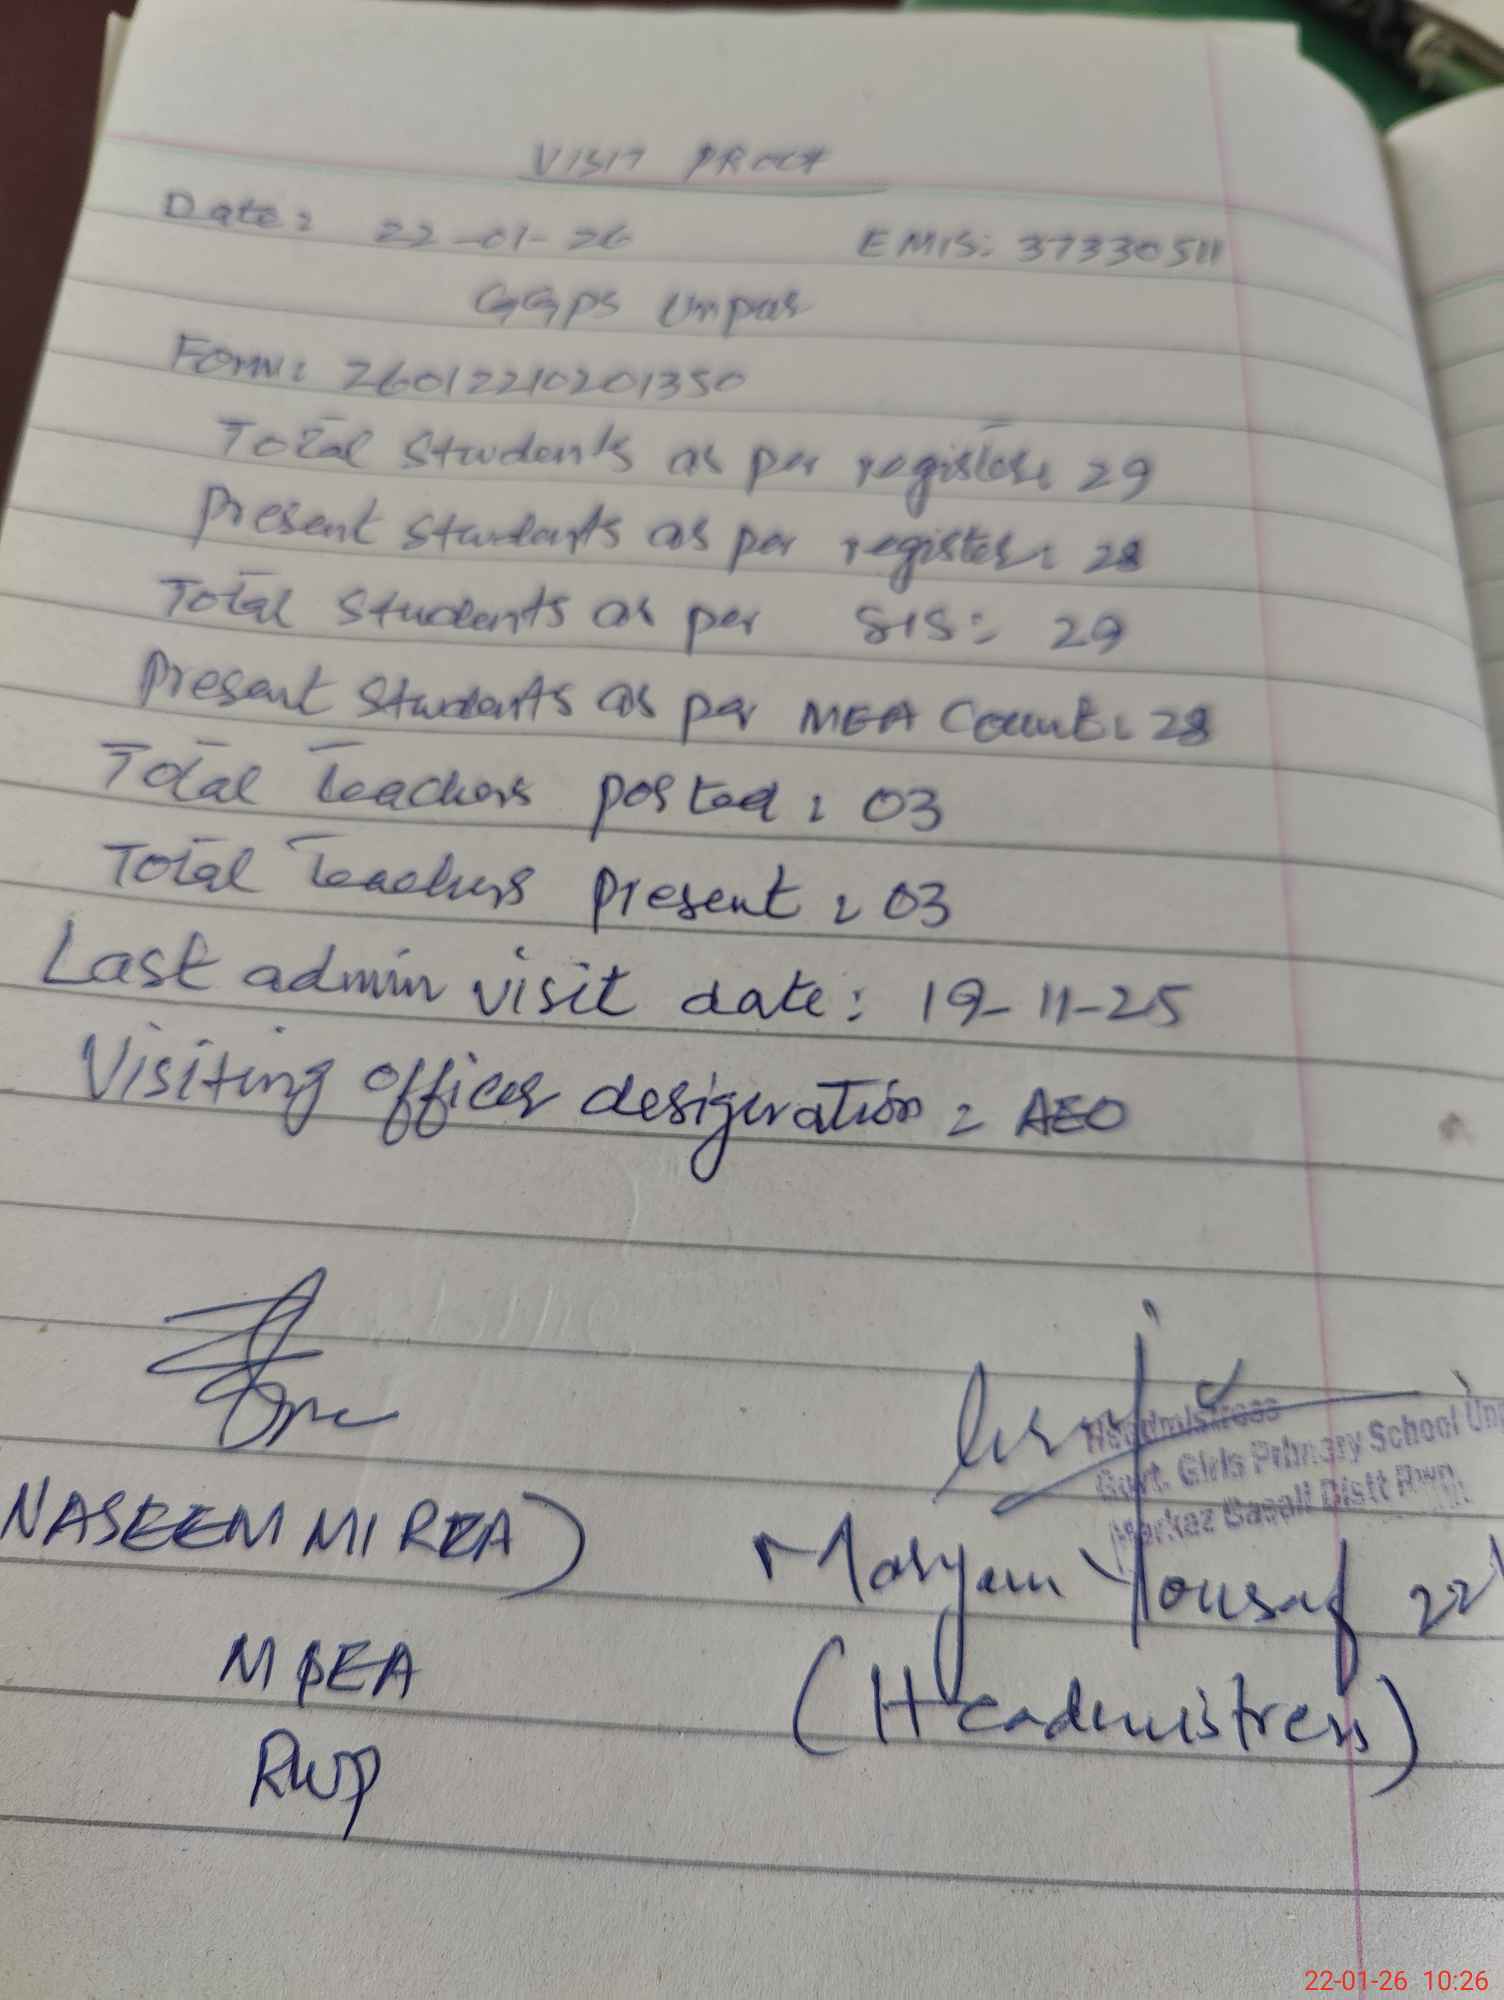 VISIT PROOF
Date: 22-01-26 EMIS: 37330511
GGPS Unpar
Form: 26012210201350
Total Students as per register: 29
Present Students as per register: 28
Total Students as per SIS: 29
Present Students as per MEA Count: 28
Total Teachers posted: 03
Total Teachers present: 03
Last admin visit date: 19-11-25
Visiting officer designation: AEO
Headmistress
Govt. Girls Primary School
Markaz Basali Distt Rwp.
NASEEM MIRZA)
Maryam Yousaf 22
MEA
(Headmistress)
Rwp
22-01-26 10:26